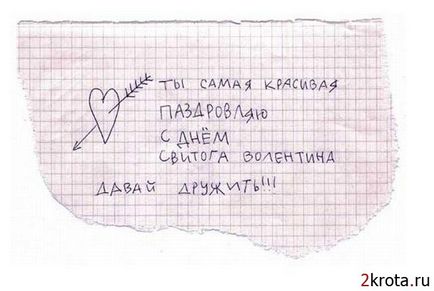 ТЫ САМАЯ КРАСИВАЯ
ПАЗДРОВЛЯЮ
С ДНЁМ
СВИТОГА ВОЛЕНТИНА
ДАВАЙ ДРУЖИТЬ!!!
2krota.ru